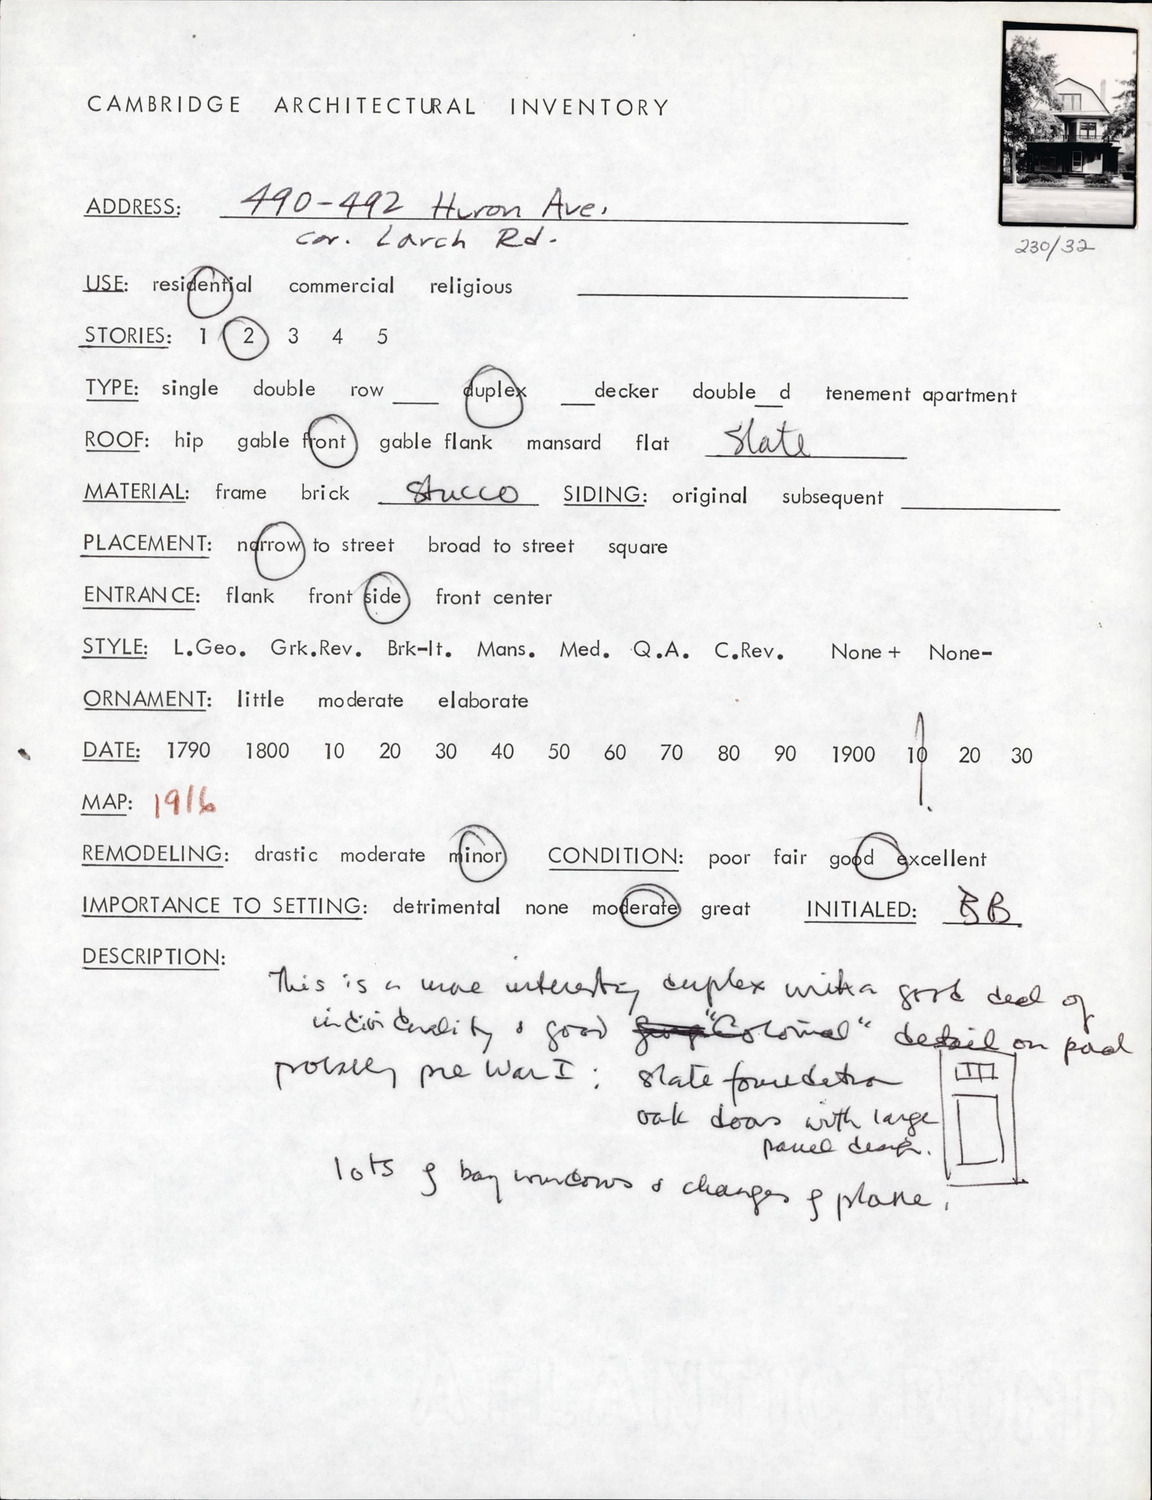 CAMBRIDGE ARCHITECTURAL INVENTORY
ADDRESS: 490-492 Huron Ave.
cor. Larch Rd.
230/32
USE: residential commercial religious
STORIES: 1 2 3 4 5
TYPE: single double row ____ duplex ___decker double__d tenement apartment
ROOF: hip gable front gable flank mansard flat Slate
MATERIAL: frame brick Stucco SIDING: original subsequent
PLACEMENT: narrow to street broad to street square
ENTRANCE: flank front side front center
STYLE: L.Geo. Grk.Rev. Brk-It. Mans. Med. Q.A. C.Rev. None + None-
ORNAMENT: little moderate elaborate
DATE: 1790 1800 10 20 30 40 50 60 70 80 90 1900 10 20 30
MAP: 1916
REMODELING: drastic moderate minor CONDITION: poor fair good excellent
IMPORTANCE TO SETTING: detrimental none moderate great INITIALED: BB
DESCRIPTION:
This is a more interesting duplex with a good deal of
individuality & good "Colonial" detail on
probably pre War I; slate foundation
oak doors with large
panel design.
lots of bay windows & changes of plane.